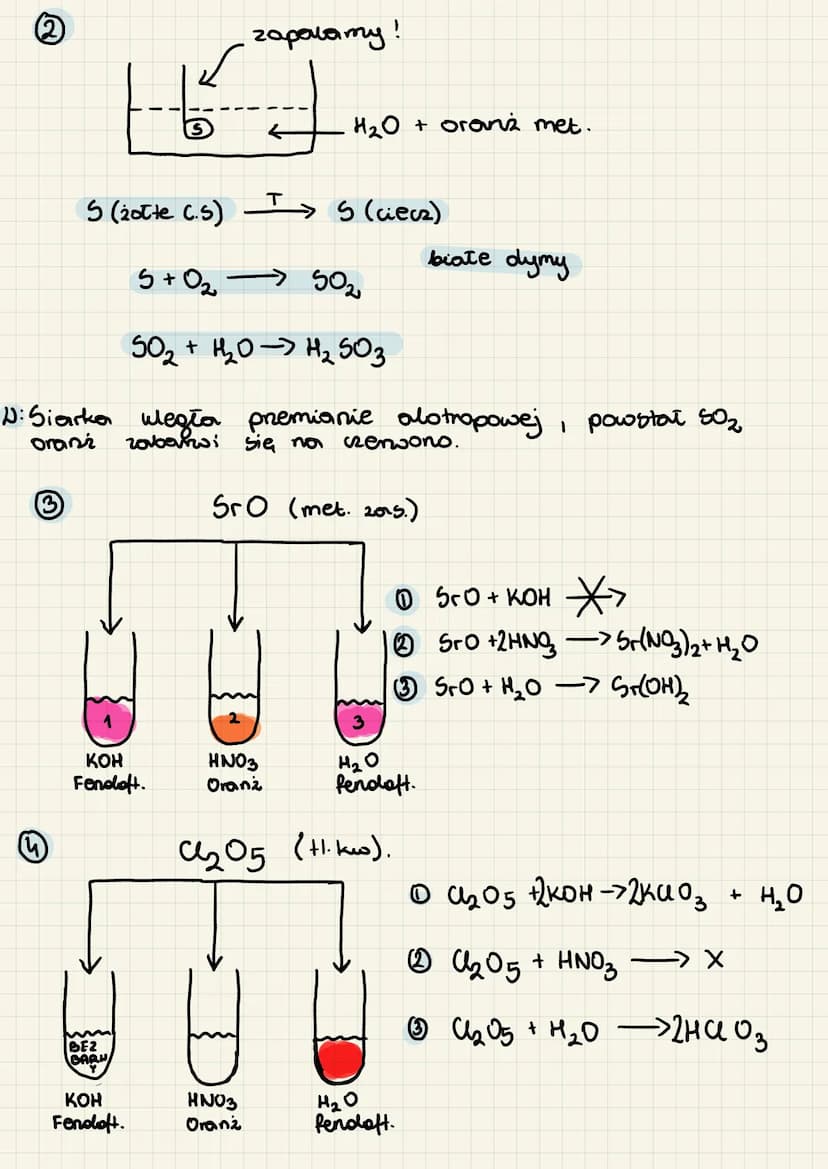 ②
zapalamy!
S
H₂O + oranż met.
S (żółte c.s) T→ S (ciecz)
S + O₂ → SO₂
białe dymy
SO₂ + H₂O → H₂SO₃
Siarka uległa przemianie alotropowej, powstał SO₂
oranż zabarwi się na czerwono.
③ SrO (met. zas.)
① SrO + KOH
② SrO + 2HNO₃ → Sr(NO₃)₂ + H₂O
③ SrO + H₂O → Sr(OH)₂
1 2 3
KOH HNO₃ H₂O
Fenoloft. Oranż fenoloft.
④ Cl₂O₅ (tl. kw).
① Cl₂O₅ + 2KOH → 2KClO₃ + H₂O
② Cl₂O₅ + HNO₃ → X
③ Cl₂O₅ + H₂O → 2HClO₃
BEZ
BARW
Y
KOH HNO₃ H₂O
Fenoloft. Oranż fenoloft.